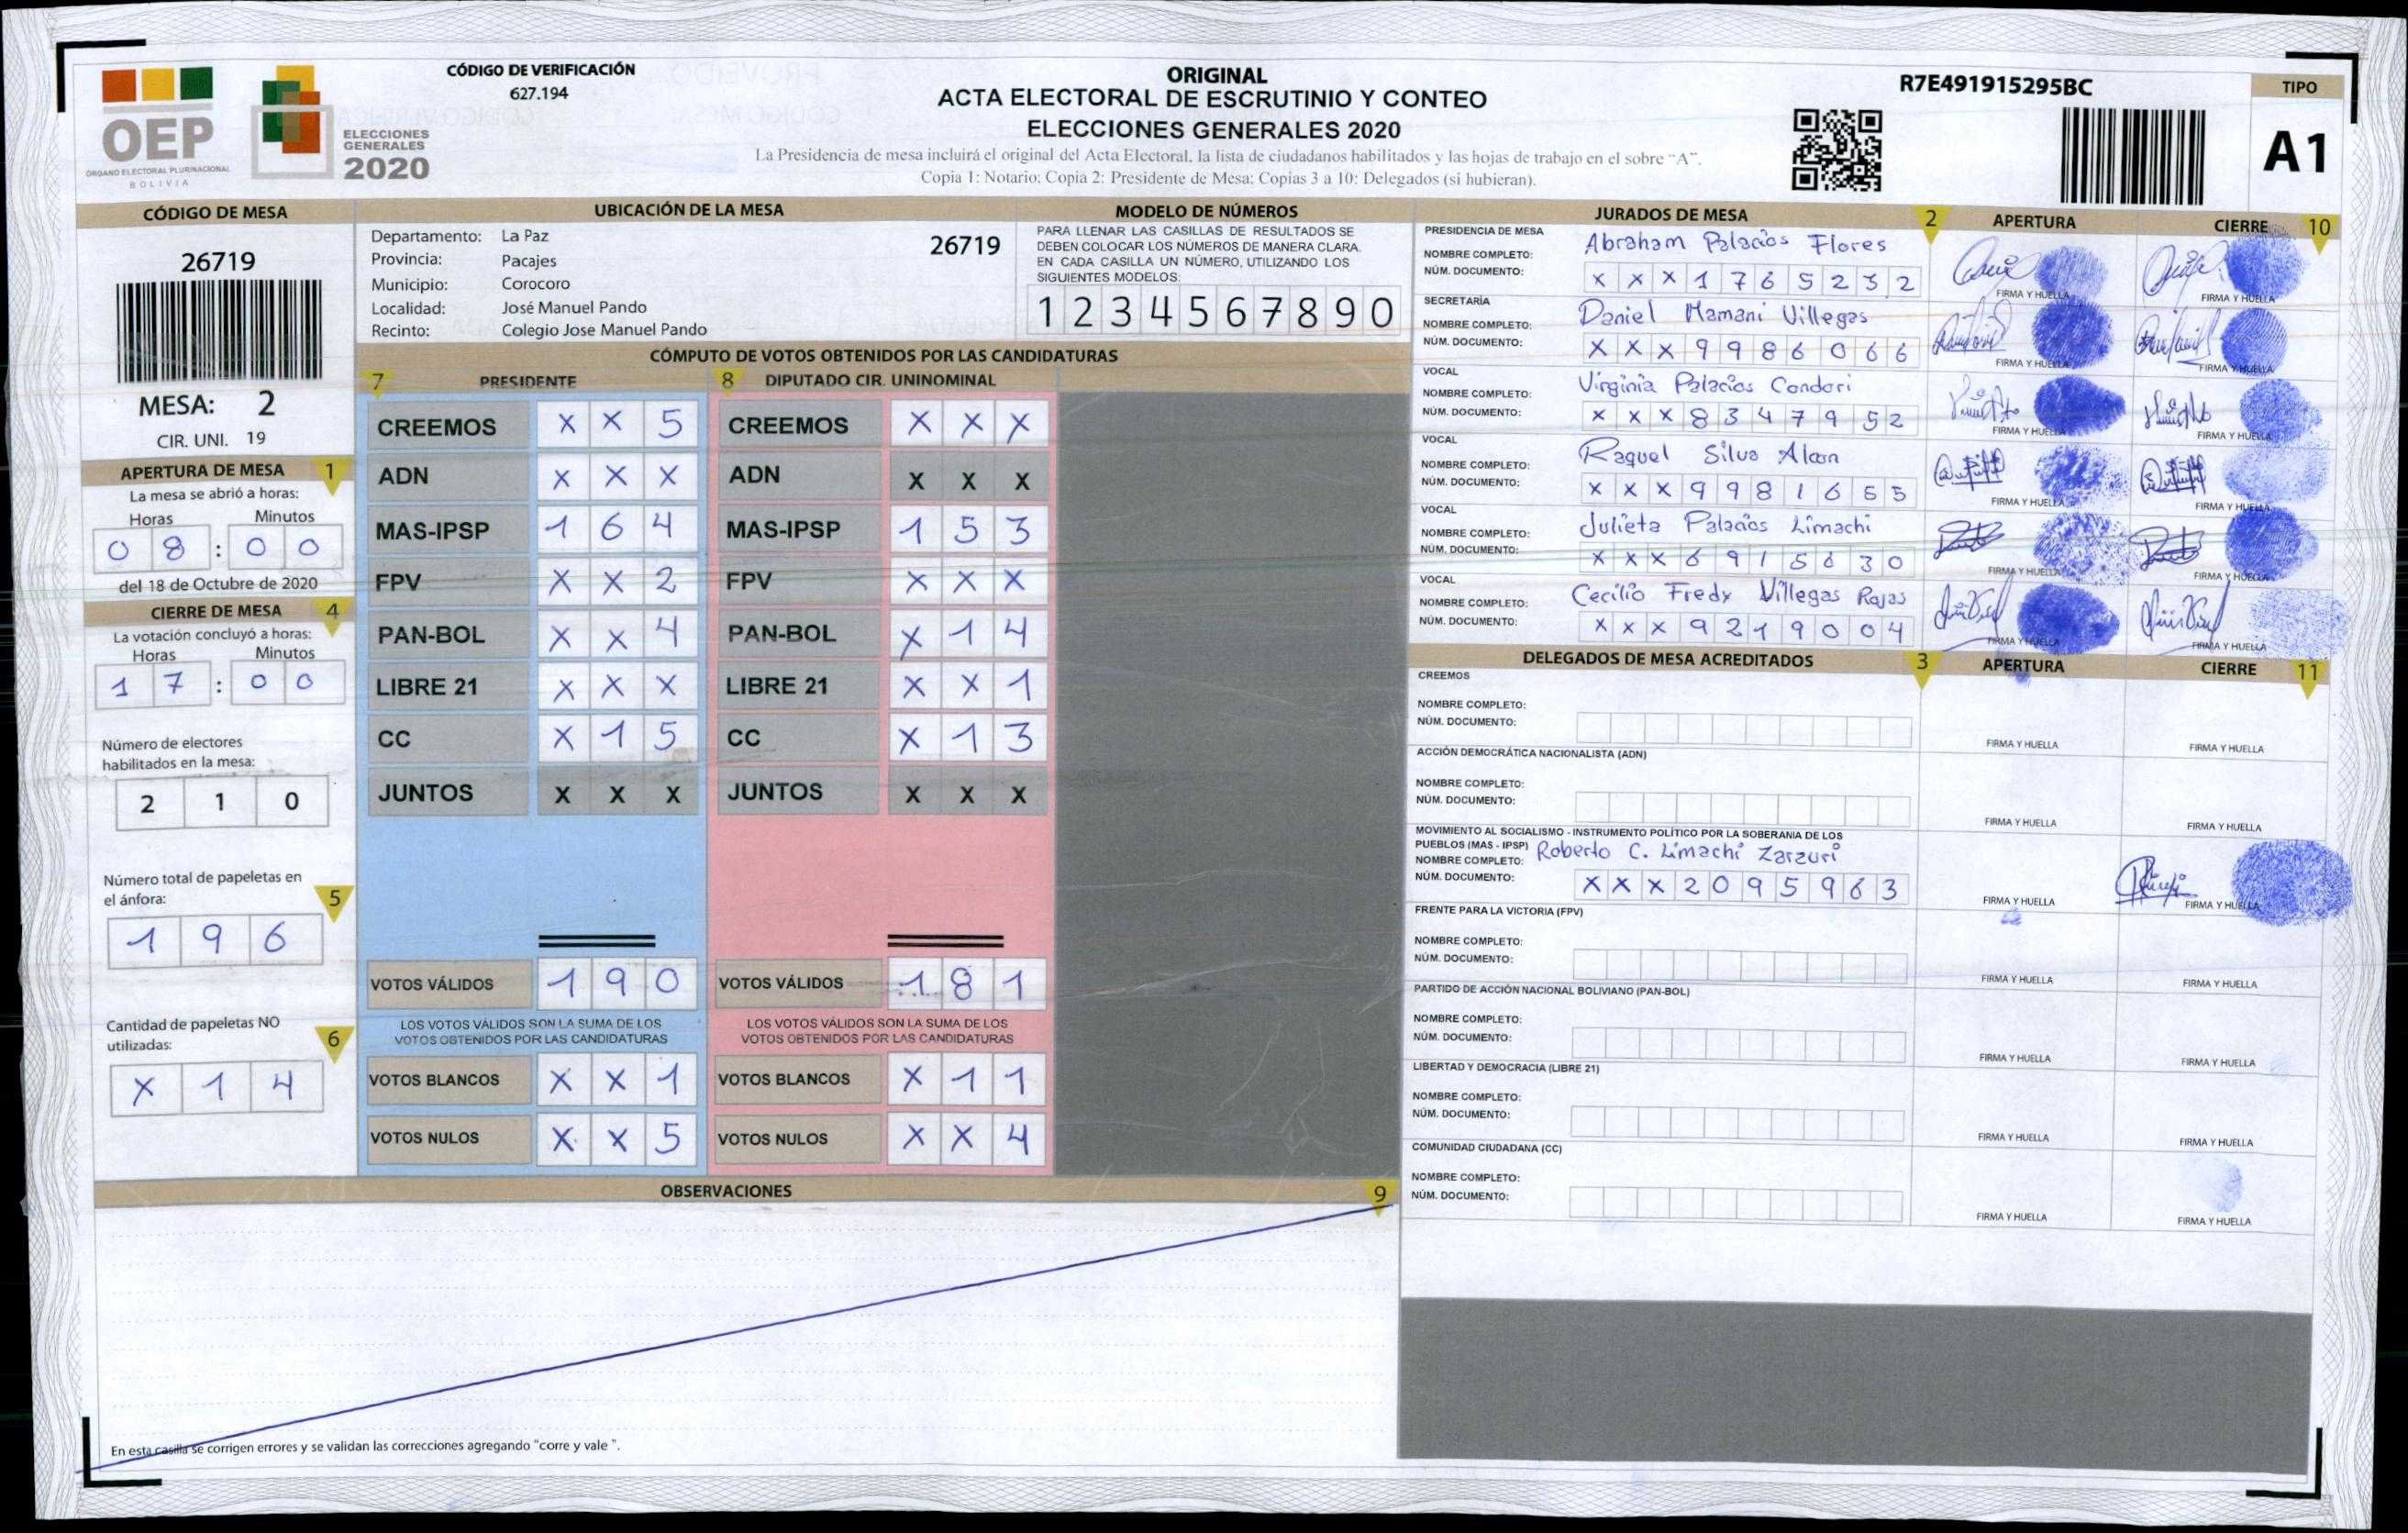 OEP
ÓRGANO ELECTORAL PLURINACIONAL
BOLIVIA
ELECCIONES
GENERALES
2020
CÓDIGO DE VERIFICACIÓN
627.194
ORIGINAL
ACTA ELECTORAL DE ESCRUTINIO Y CONTEO
ELECCIONES GENERALES 2020
La Presidencia de mesa incluirá el original del Acta Electoral, la lista de ciudadanos habilitados y las hojas de trabajo en el sobre "A".
Copia 1: Notario; Copia 2: Presidente de Mesa; Copias 3 a 10: Delegados (si hubieran).
R7E491915295BC
TIPO
A1
CÓDIGO DE MESA
26719
MESA: 2
CIR. UNI. 19
APERTURA DE MESA 1
La mesa se abrió a horas:
Horas Minutos
0 8 : 0 0
del 18 de Octubre de 2020
CIERRE DE MESA 4
La votación concluyó a horas:
Horas Minutos
1 7 : 0 0
Número de electores
habilitados en la mesa:
2 1 0
Número total de papeletas en
el ánfora: 5
1 9 6
Cantidad de papeletas NO
utilizadas: 6
X 1 4
UBICACIÓN DE LA MESA
Departamento: La Paz 26719
Provincia: Pacajes
Municipio: Corocoro
Localidad: José Manuel Pando
Recinto: Colegio Jose Manuel Pando
MODELO DE NÚMEROS
PARA LLENAR LAS CASILLAS DE RESULTADOS SE
DEBEN COLOCAR LOS NÚMEROS DE MANERA CLARA.
EN CADA CASILLA UN NÚMERO, UTILIZANDO LOS
SIGUIENTES MODELOS:
1 2 3 4 5 6 7 8 9 0
CÓMPUTO DE VOTOS OBTENIDOS POR LAS CANDIDATURAS
7 PRESIDENTE 8 DIPUTADO CIR. UNINOMINAL
CREEMOS X X 5 CREEMOS X X X
ADN X X X ADN X X X
MAS-IPSP 1 6 4 MAS-IPSP 1 5 3
FPV X X 2 FPV X X X
PAN-BOL X X 4 PAN-BOL X 1 4
LIBRE 21 X X X LIBRE 21 X X 1
CC X 1 5 CC X 1 3
JUNTOS X X X JUNTOS X X X
VOTOS VÁLIDOS 1 9 0 VOTOS VÁLIDOS 1 8 1
LOS VOTOS VÁLIDOS SON LA SUMA DE LOS LOS VOTOS VÁLIDOS SON LA SUMA DE LOS
VOTOS OBTENIDOS POR LAS CANDIDATURAS VOTOS OBTENIDOS POR LAS CANDIDATURAS
VOTOS BLANCOS X X 1 VOTOS BLANCOS X 1 1
VOTOS NULOS X X 5 VOTOS NULOS X X 4
OBSERVACIONES 9
En esta casilla se corrigen errores y se validan las correcciones agregando "corre y vale ".
JURADOS DE MESA 2 APERTURA CIERRE 10
PRESIDENCIA DE MESA
NOMBRE COMPLETO: Abraham Palacios Flores
NÚM. DOCUMENTO: X X X 1 7 6 5 2 3 2
FIRMA Y HUELLA FIRMA Y HUELLA
SECRETARÍA
NOMBRE COMPLETO: Daniel Mamani Villegas
NÚM. DOCUMENTO: X X X 9 9 8 6 0 6 6
FIRMA Y HUELLA FIRMA Y HUELLA
VOCAL
NOMBRE COMPLETO: Virginia Palacios Condori
NÚM. DOCUMENTO: X X X 8 3 4 7 9 5 2
FIRMA Y HUELLA FIRMA Y HUELLA
VOCAL
NOMBRE COMPLETO: Raquel Silva
NÚM. DOCUMENTO: X X X 9 9 8 1 6 5 5
FIRMA Y HUELLA FIRMA Y HUELLA
VOCAL
NOMBRE COMPLETO: Julieta Palacios Limachi
NÚM. DOCUMENTO:
FIRMA Y HUELLA FIRMA Y HUELLA
VOCAL
NOMBRE COMPLETO: Cecilio Fredy Villegas Rojas
NÚM. DOCUMENTO: X X X 9 2 1 9 0 0 4
FIRMA Y HUELLA FIRMA Y HUELLA
DELEGADOS DE MESA ACREDITADOS 3 APERTURA CIERRE 11
CREEMOS
NOMBRE COMPLETO:
NÚM. DOCUMENTO:
FIRMA Y HUELLA FIRMA Y HUELLA
ACCIÓN DEMOCRÁTICA NACIONALISTA (ADN)
NOMBRE COMPLETO:
NÚM. DOCUMENTO:
FIRMA Y HUELLA FIRMA Y HUELLA
MOVIMIENTO AL SOCIALISMO - INSTRUMENTO POLÍTICO POR LA SOBERANIA DE LOS
PUEBLOS (MAS - IPSP)
NOMBRE COMPLETO: Roberto C. Limachi Zarzuri
NÚM. DOCUMENTO: X X X 2 0 9 5 9 6 3
FIRMA Y HUELLA FIRMA Y HUELLA
FRENTE PARA LA VICTORIA (FPV)
NOMBRE COMPLETO:
NÚM. DOCUMENTO:
FIRMA Y HUELLA FIRMA Y HUELLA
PARTIDO DE ACCIÓN NACIONAL BOLIVIANO (PAN-BOL)
NOMBRE COMPLETO:
NÚM. DOCUMENTO:
FIRMA Y HUELLA FIRMA Y HUELLA
LIBERTAD Y DEMOCRACIA (LIBRE 21)
NOMBRE COMPLETO:
NÚM. DOCUMENTO:
FIRMA Y HUELLA FIRMA Y HUELLA
COMUNIDAD CIUDADANA (CC)
NOMBRE COMPLETO:
NÚM. DOCUMENTO:
FIRMA Y HUELLA FIRMA Y HUELLA